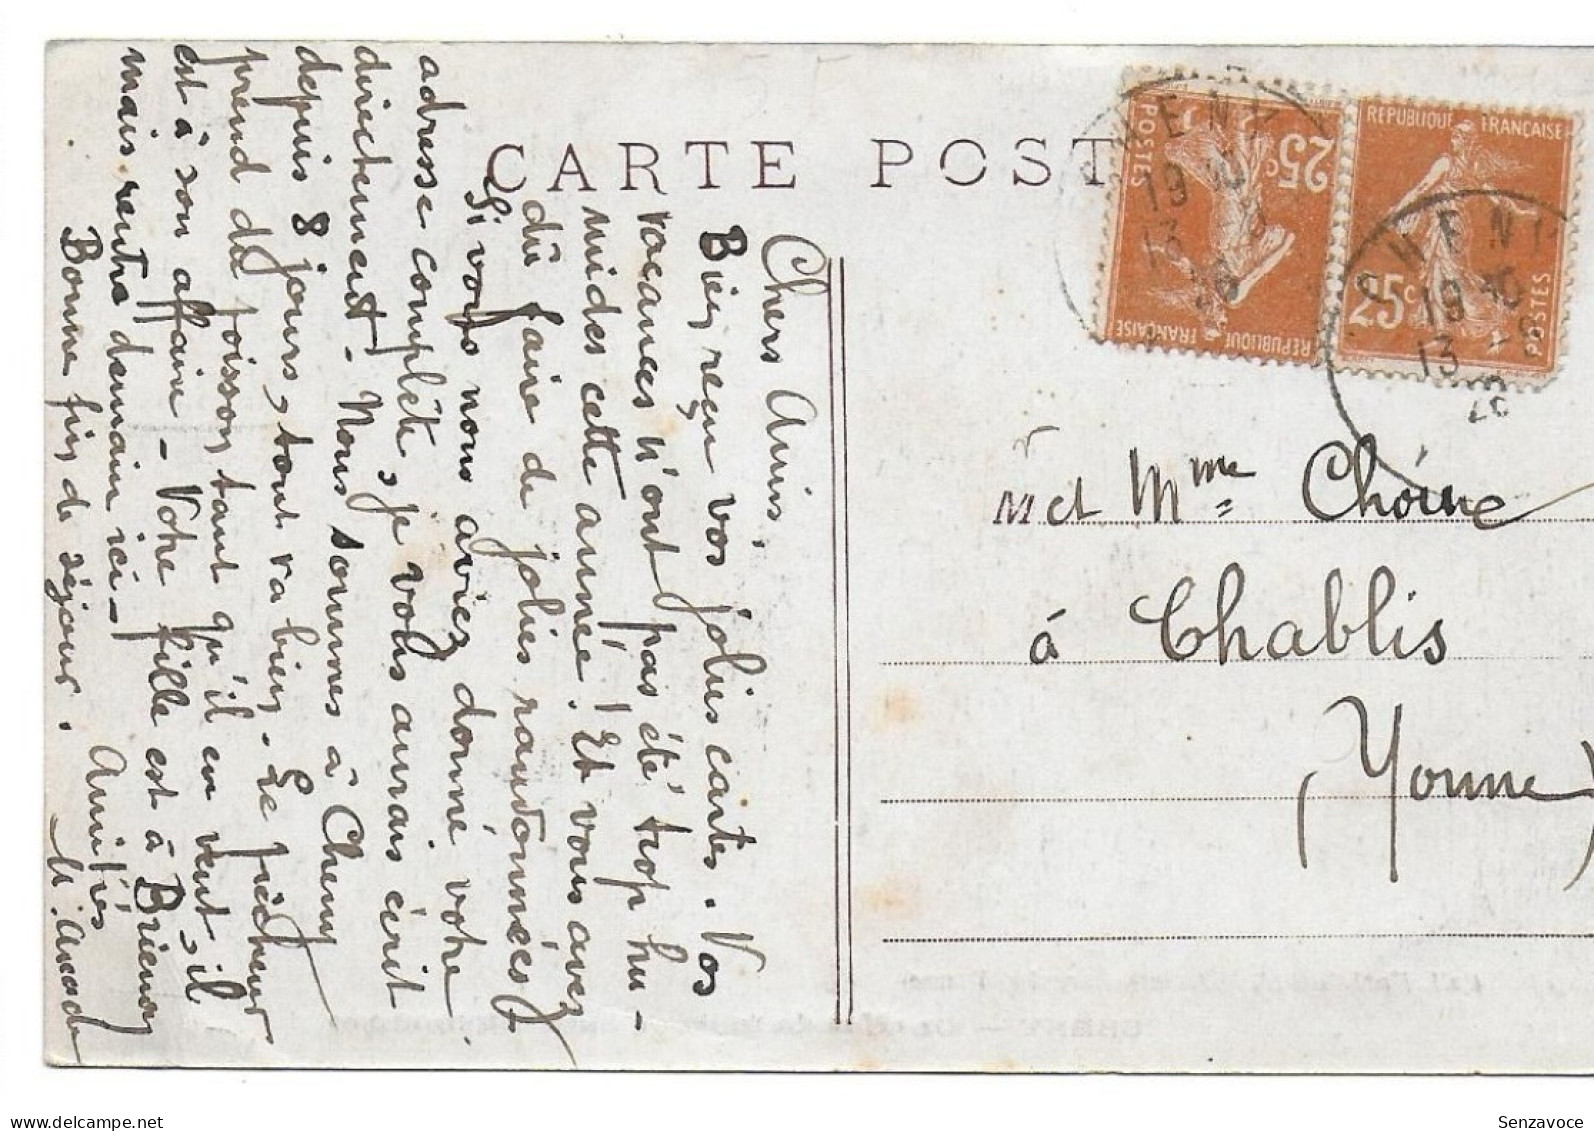 CARTE POST
Chers Amis,
Bien reçu vos jolies cartes. Vos
vacances n'ont pas été trop hu-
mides cette année! Et vous avez
dû faire de jolies randonnées!
Si vous nous aviez donné votre
adresse complète, je vous aurais écrit
directement - Nous sommes à Cheny
depuis 8 jours, tout va bien. Le pêcheur
prend du poisson tant qu'il en veut, il
est à son affaire - Votre fille est à Brienon
mais rentre demain ici -
Bonne fin de séjour. Amitiés
REPUBLIQUE FRANÇAISE
25c
POSTES
REPUBLIQUE FRANÇAISE
25c
POSTES
CHENY
19
13 - 8
28
CHENY
19
13 - 8
28
M et Mme Choine
à Chablis
(Yonne)
Senzavoce